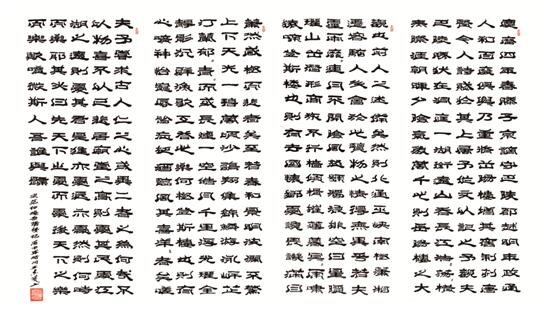 慶曆四年春滕子京謫守巴陵郡越明年政通
人和百廢具興乃重修岳陽樓增其舊制刻唐
賢今人詩賦於其上屬予作文以記之予觀夫
巴陵勝狀在洞庭一湖銜遠山吞長江浩浩湯湯橫
無際涯朝暉夕陰氣象萬千此則岳陽樓之大
觀也前人之述備矣然則北通巫峽南極瀟湘
遷客騷人多會於此覽物之情得無異乎若夫
霪雨霏霏連月不開陰風怒號濁浪排空日星隱
曜山岳潛形商旅不行檣傾楫摧薄暮冥冥虎嘯
猿啼登斯樓也則有去國懷鄉憂讒畏譏滿目
蕭然感極而悲者矣至若春和景明波瀾不驚
上下天光一碧萬頃沙鷗翔集錦鱗游泳岸芷
汀蘭郁郁青青而或長煙一空皓月千里浮光躍金
靜影沉璧漁歌互答此樂何極登斯樓也則有
心曠神怡寵辱偕忘把酒臨風其喜洋洋者矣嗟
夫予嘗求古仁人之心或異二者之為何哉不
以物喜不以己悲居廟堂之高則憂其民處江
湖之遠則憂其君是進亦憂退亦憂然則何時
而樂耶其必曰先天下之憂而憂後天下之樂
而樂歟噫微斯人吾誰與歸
范仲淹岳陽樓記